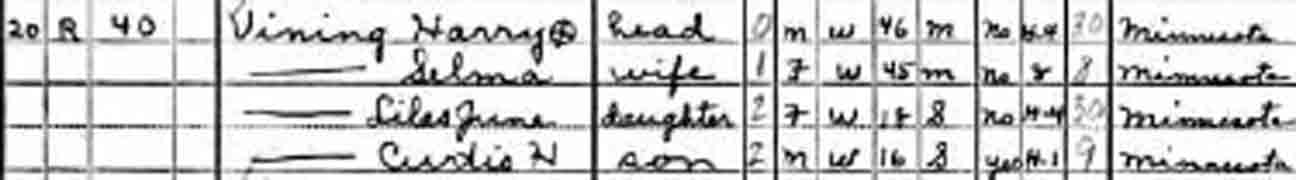 20 R 40 Vining Harry ⊗ head 0 m w 46 m no H-4 30 Minnesota
—— Selma wife 1 F w 45 m no 8 8 Minnesota
—— June daughter 2 F w S no H-4 30 Minnesota
—— Curtis H son 2 m w 16 S yes H-1 9 Minnesota